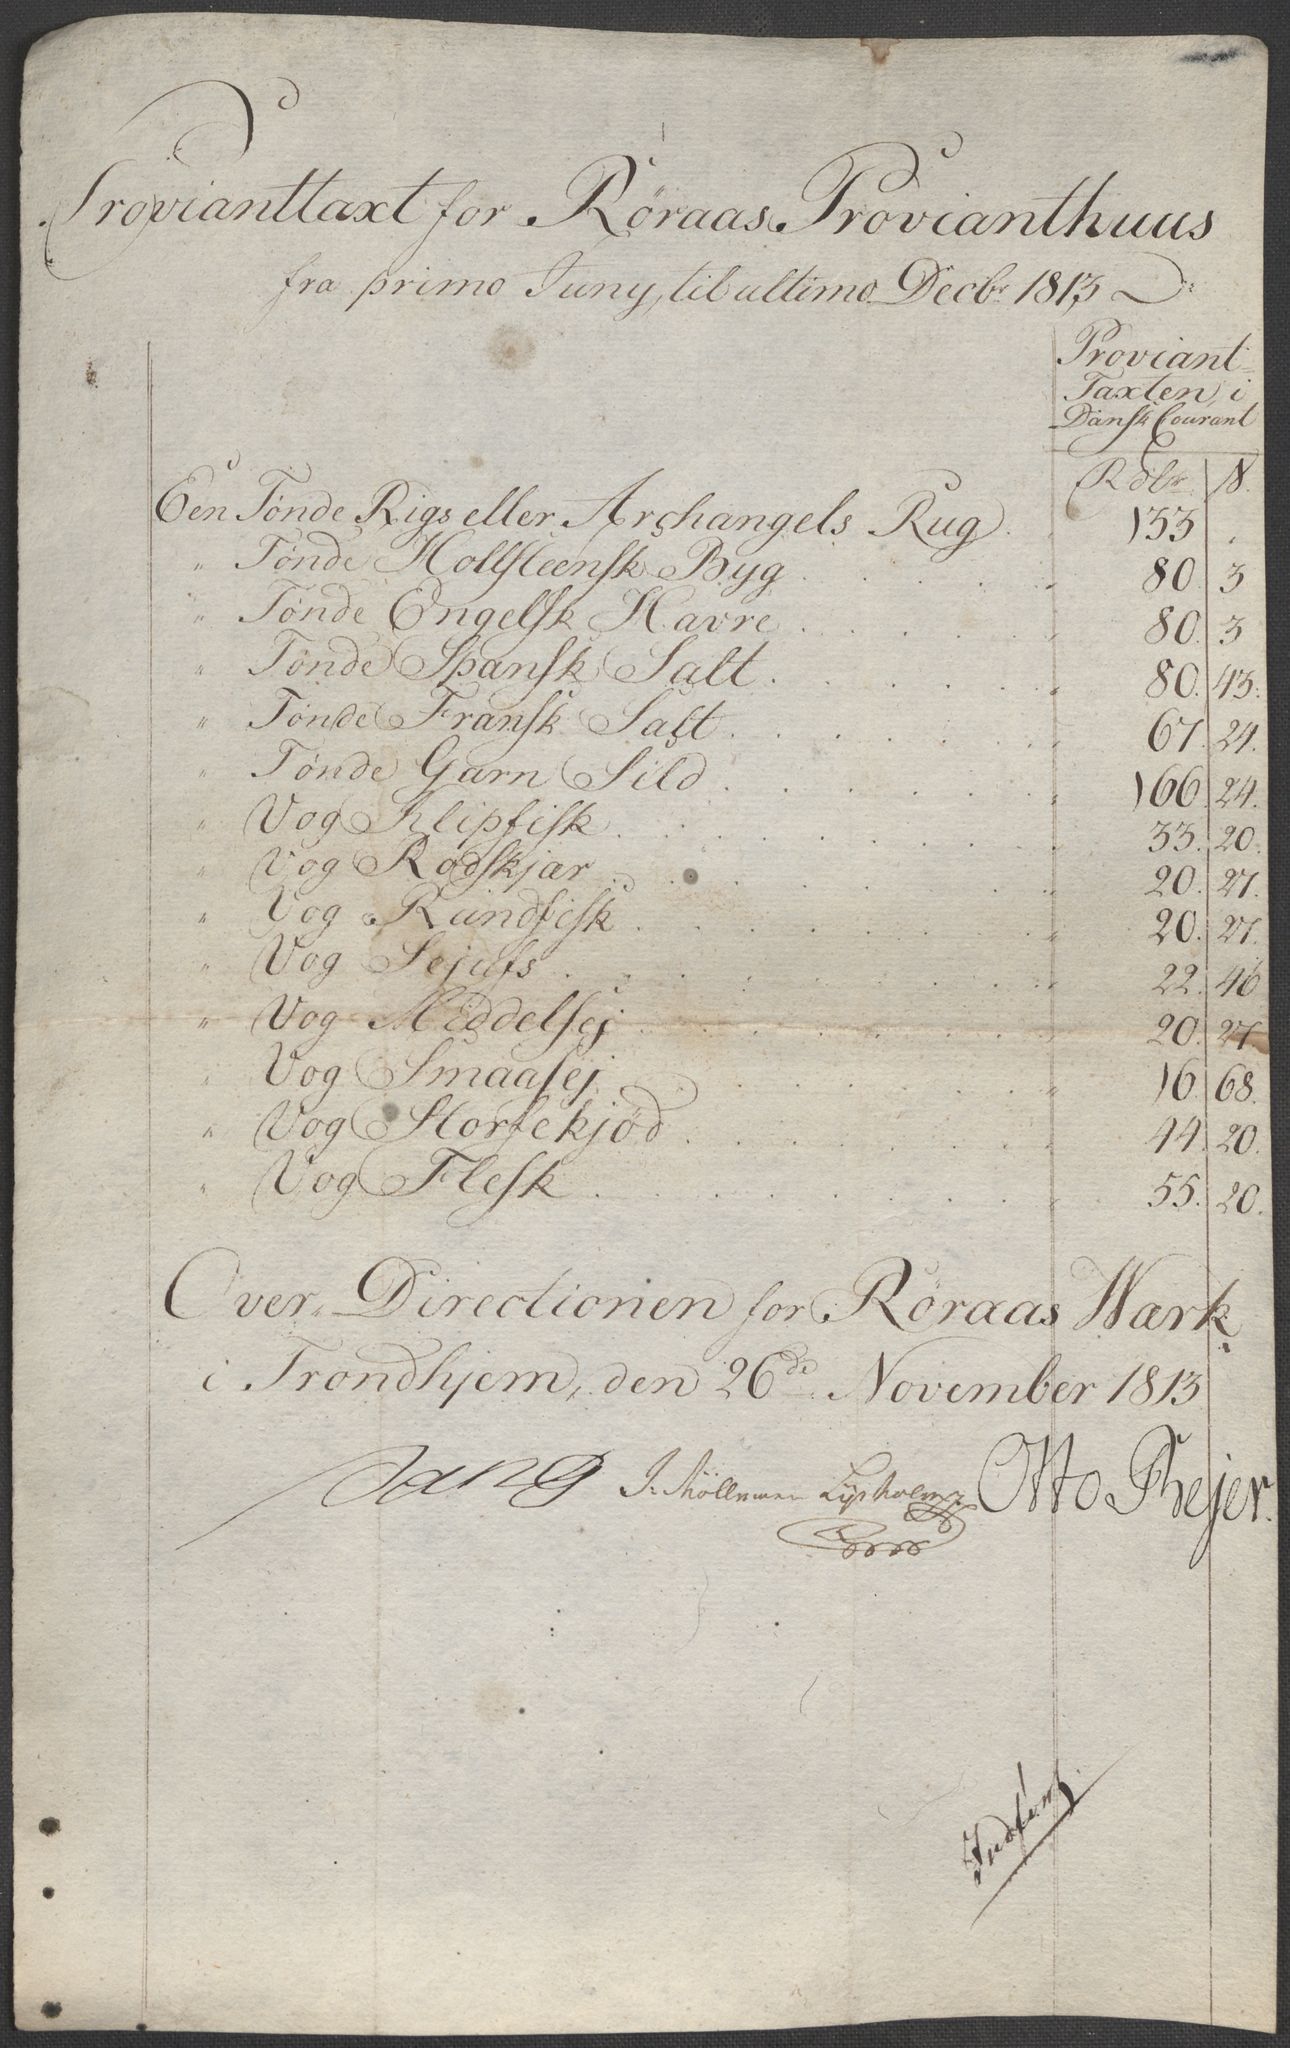 Provianttaxt for Röraas Provianthuus
fra primo Juny, til ultimo Decbr 1813
Proviant
Taxten i
Dansk Courant
Rdlr ß.
Een Tønde Rigs eller Archangels Rug . 133 .
" Tønde Hollsteensk Byg . . . . . . 80. 3
" Tønde Engelsk Havre . . . . . . 80. 3
" Tønde Spansk Salt . . . . . . 80. 43.
" Tønde Fransk Salt . . . . . . 67. 24.
" Tønde Garn Sild . . . . . . 166. 24.
" Vog Klipfisk . . . . . . 33. 20.
" Vog Rodskjær . . . . . . 20. 27.
" Vog Rundfisk . . . . . . 20. 27.
" Vog Sejufs . . . . . . 22. 46
" Vog Middelsej . . . . . . 20. 27.
" Vog Smaasej . . . . . . 16. 68.
" Vog Storfekjød . . . . . . 44. 20.
" Vog Flesk . . . . . . 55. 20.
Over Directionen for Röraas Værk
i Trondhjem, den 26de November 1813
Jang J. Möllmann Lysholm Otto Thejer.